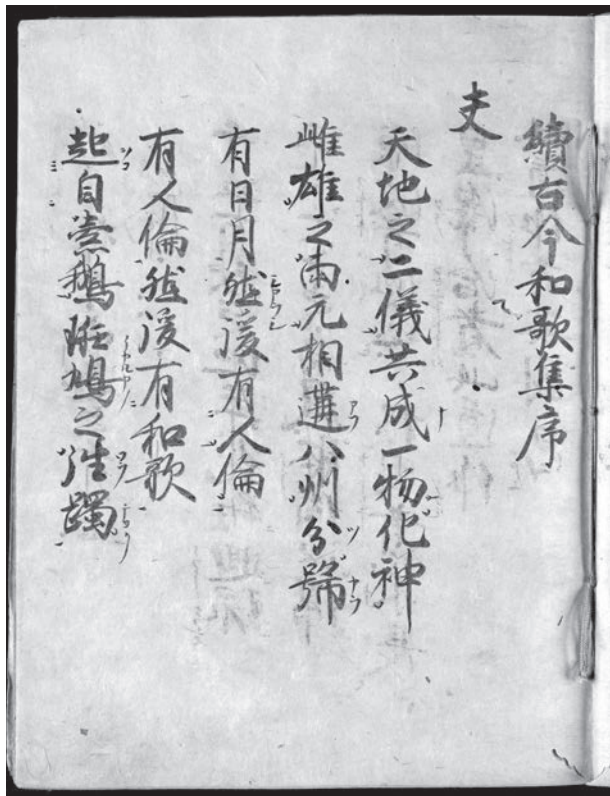 續古今和歌集序
夫
天地之二儀共成一物化神
雌雄之兩元相遘八州分號
有日月然後有人倫
有人倫然後有和歌
起自鵝鳩之往躅